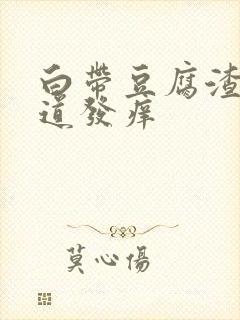 白帶豆腐渣
道發痒
莫心傷